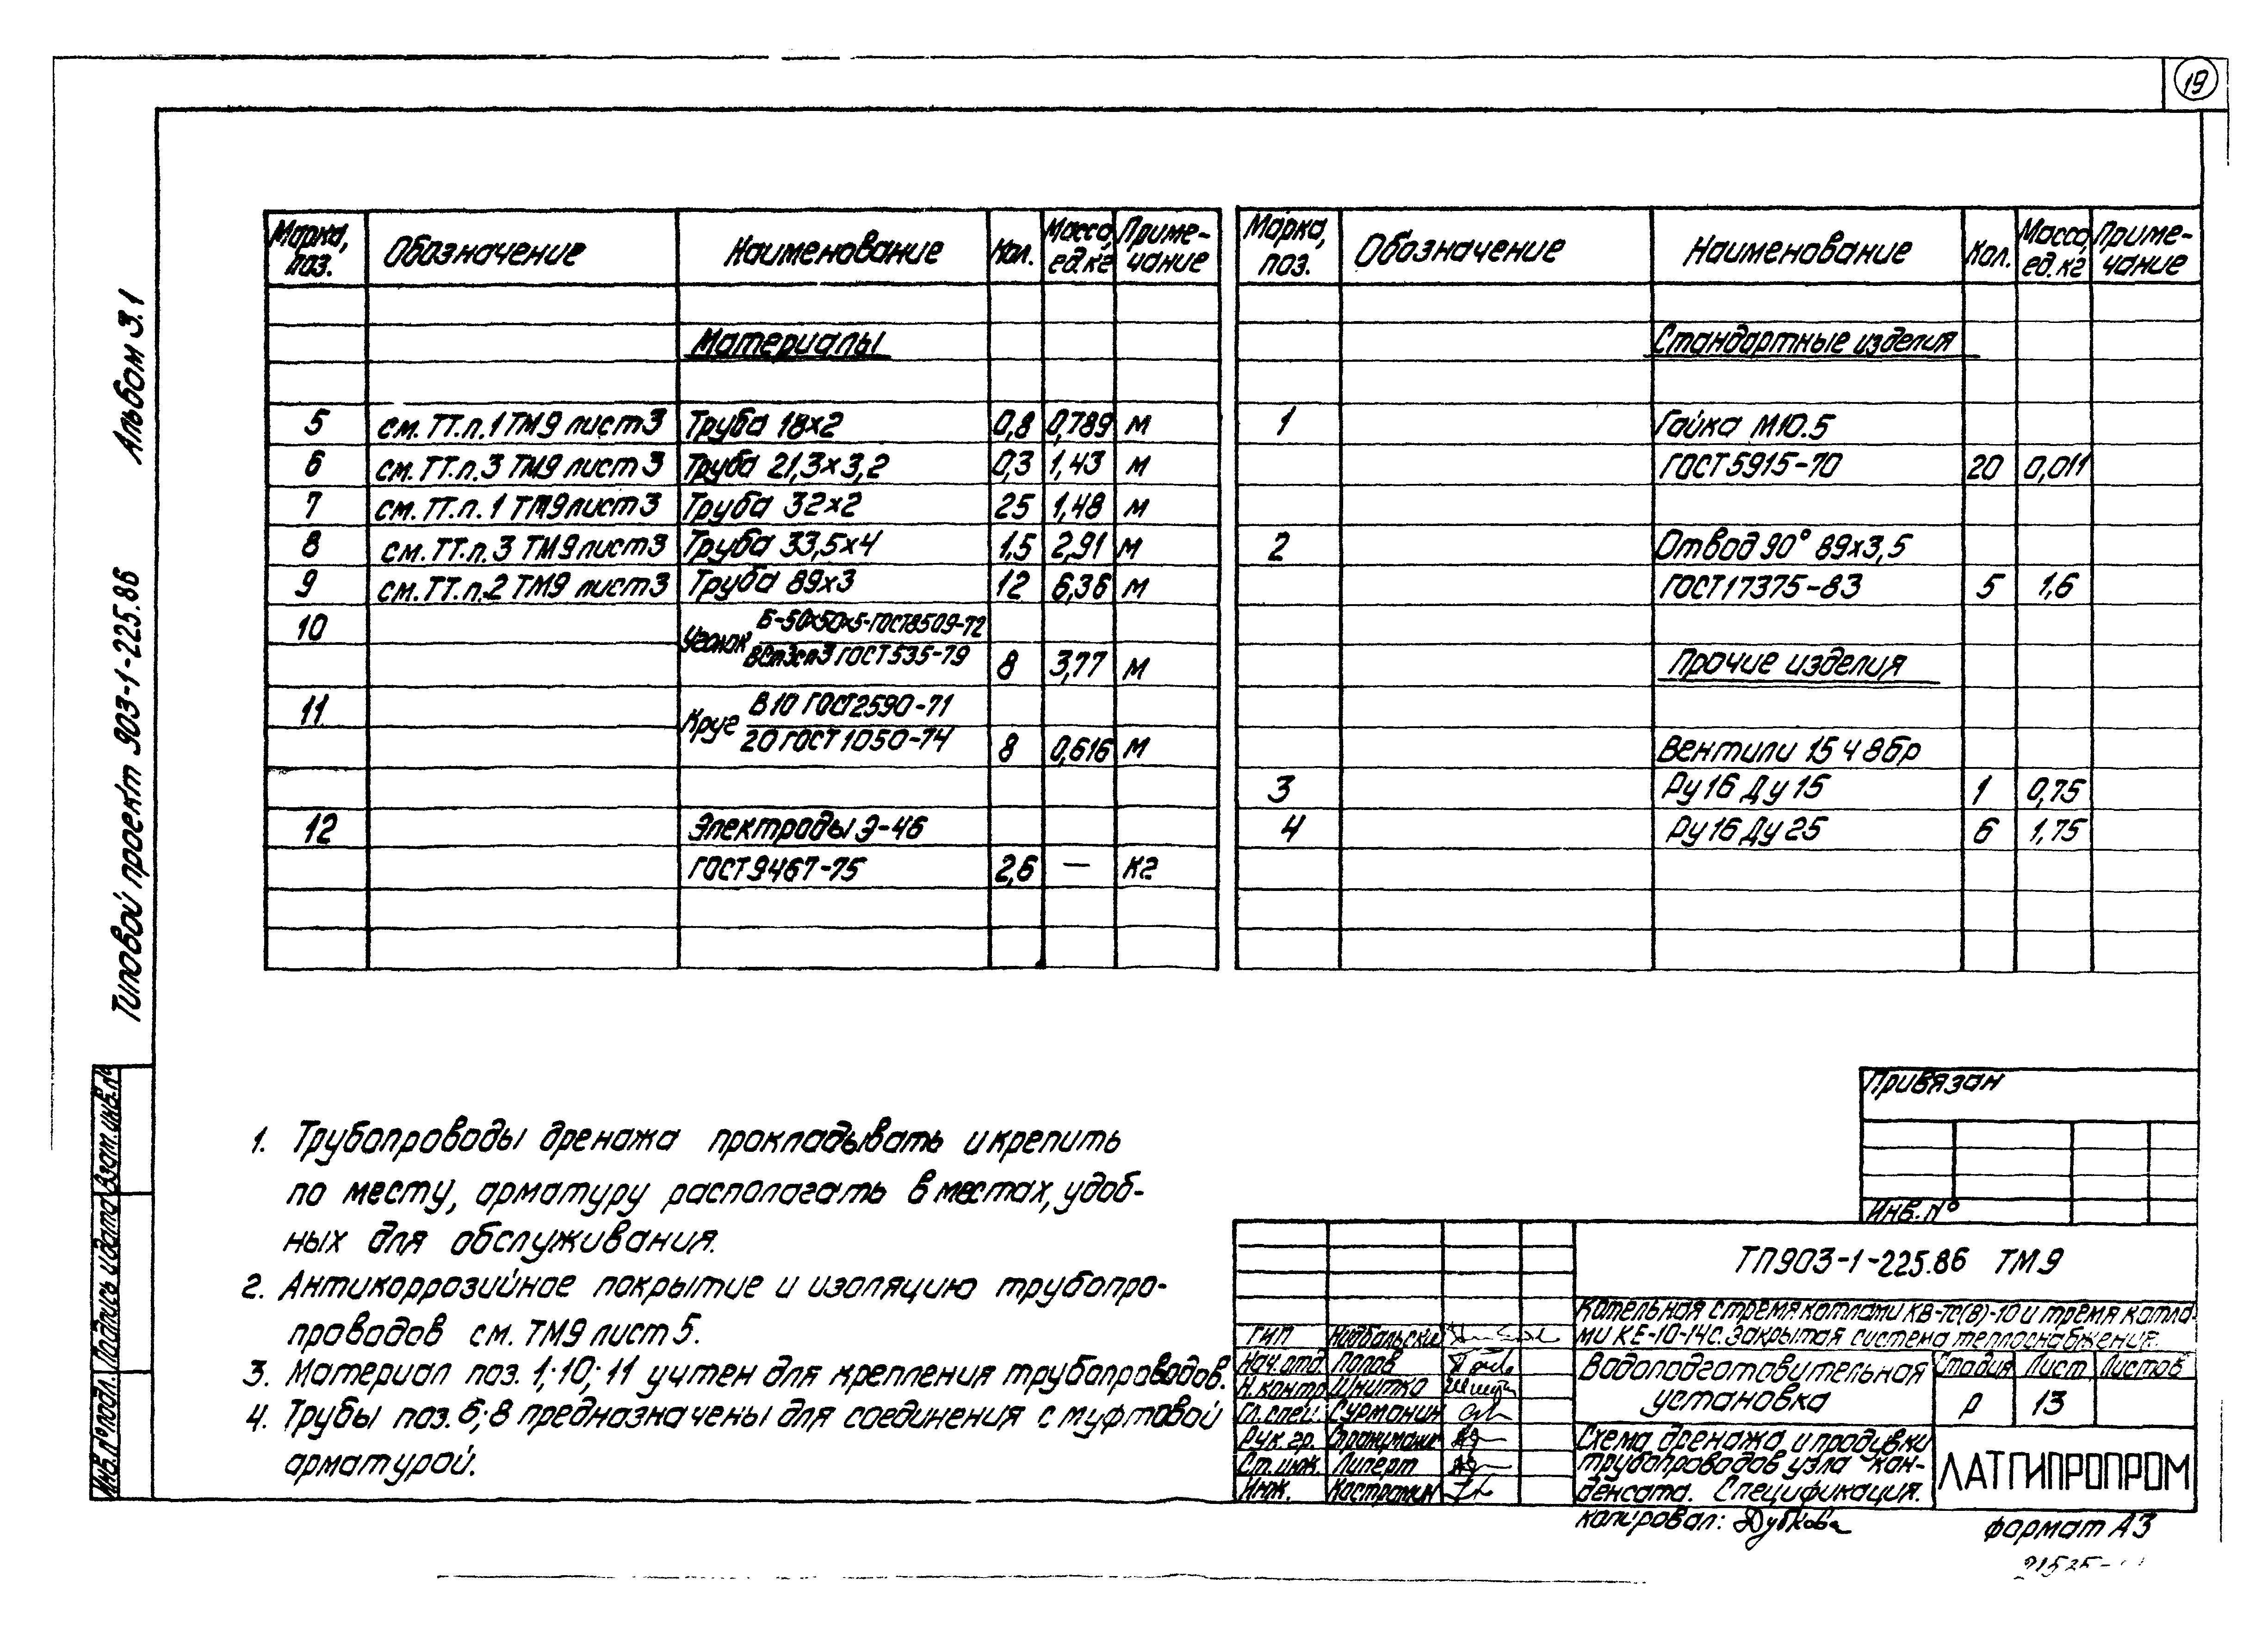 19
Альбом 3.1
Типовой проект 903-1-225.86
Марка, поз. Обозначение Наименование Кол. Масса, ед.кг Приме-чание
Материалы
5 см. ТТ.п.1 ТМ9 лист 3 Труба 18х2 0,8 0,789 м
6 см. ТТ.п.3 ТМ9 лист 3 Труба 21,3х3,2 0,3 1,43 м
7 см. ТТ.п.1 ТМ9 лист 3 Труба 32х2 25 1,48 м
8 см. ТТ.п.3 ТМ9 лист 3 Труба 33,5х4 1,5 2,91 м
9 см. ТТ.п.2 ТМ9 лист 3 Труба 89х3 12 6,36 м
10 Уголок Б-50х50х5-ГОСТ8509-72
ВСт3сп3 ГОСТ535-79 8 3,77 м
11 Круг В10 ГОСТ2590-71
20 ГОСТ1050-74 8 0,616 м
12 Электроды Э-46
ГОСТ9467-75 2,6 — кг
Марка, поз. Обозначение Наименование Кол. Масса, ед.кг Приме-чание
Стандартные изделия
1 Гайка М10.5
ГОСТ5915-70 20 0,011
2 Отвод 90° 89х3,5
ГОСТ17375-83 5 1,6
Прочие изделия
Вентили 15ч8бр
3 Ру16 Ду15 1 0,75
4 Ру16 Ду25 6 1,75
1. Трубопроводы дренажа прокладывать и крепить
по месту, арматуру располагать в местах, удоб-
ных для обслуживания.
2. Антикоррозийное покрытие и изоляцию трубопро-
проводов см. ТМ9 лист 5.
3. Материал поз. 1; 10; 11 учтен для крепления трубопроводов.
4. Трубы поз. 6; 8 предназначены для соединения с муфтовой
арматурой.
Взам.инв.№
Подпись и дата
Инв.№подл.
Привязан
Инв.№
ТП903-1-225.86 ТМ9
Котельная с тремя котлами КВ-ТС(В)-10 и тремя котла-
ми КЕ-10-14с. Закрытая система теплоснабжения.
ГИП
Нач.отд. Попов
Н.контр. Шнитко
Гл.спец. Сурманин
Рук.гр.
Ст.инж. Липерт
Инж. Костромин
Водоподготовительная
установка
Стадия Лист Листов
Р 13
Схема дренажа и продувки
трубопроводов узла кон-
денсата. Спецификация.
ЛАТГИПРОПРОМ
Копировал: Дубкова
формат А3